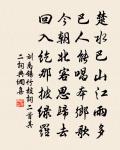 楚水巴山江雨多
巴人能唱本鄉歌
今朝北客思歸去
回入紇那披綠羅
劉禹錫竹枝詞二首其
二詞典網集